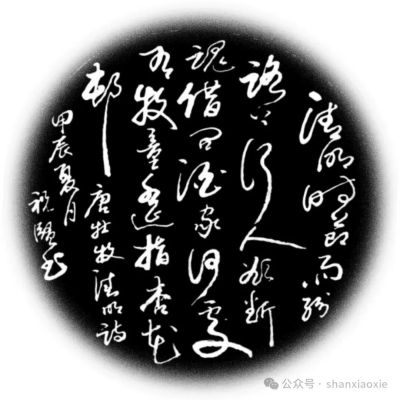 清明时节雨纷纷
路上行人欲断
魂借问酒家何处
有牧童遥指杏花
邨
唐杜牧清明诗
甲辰夏月
公众号 · shanxiaoxie